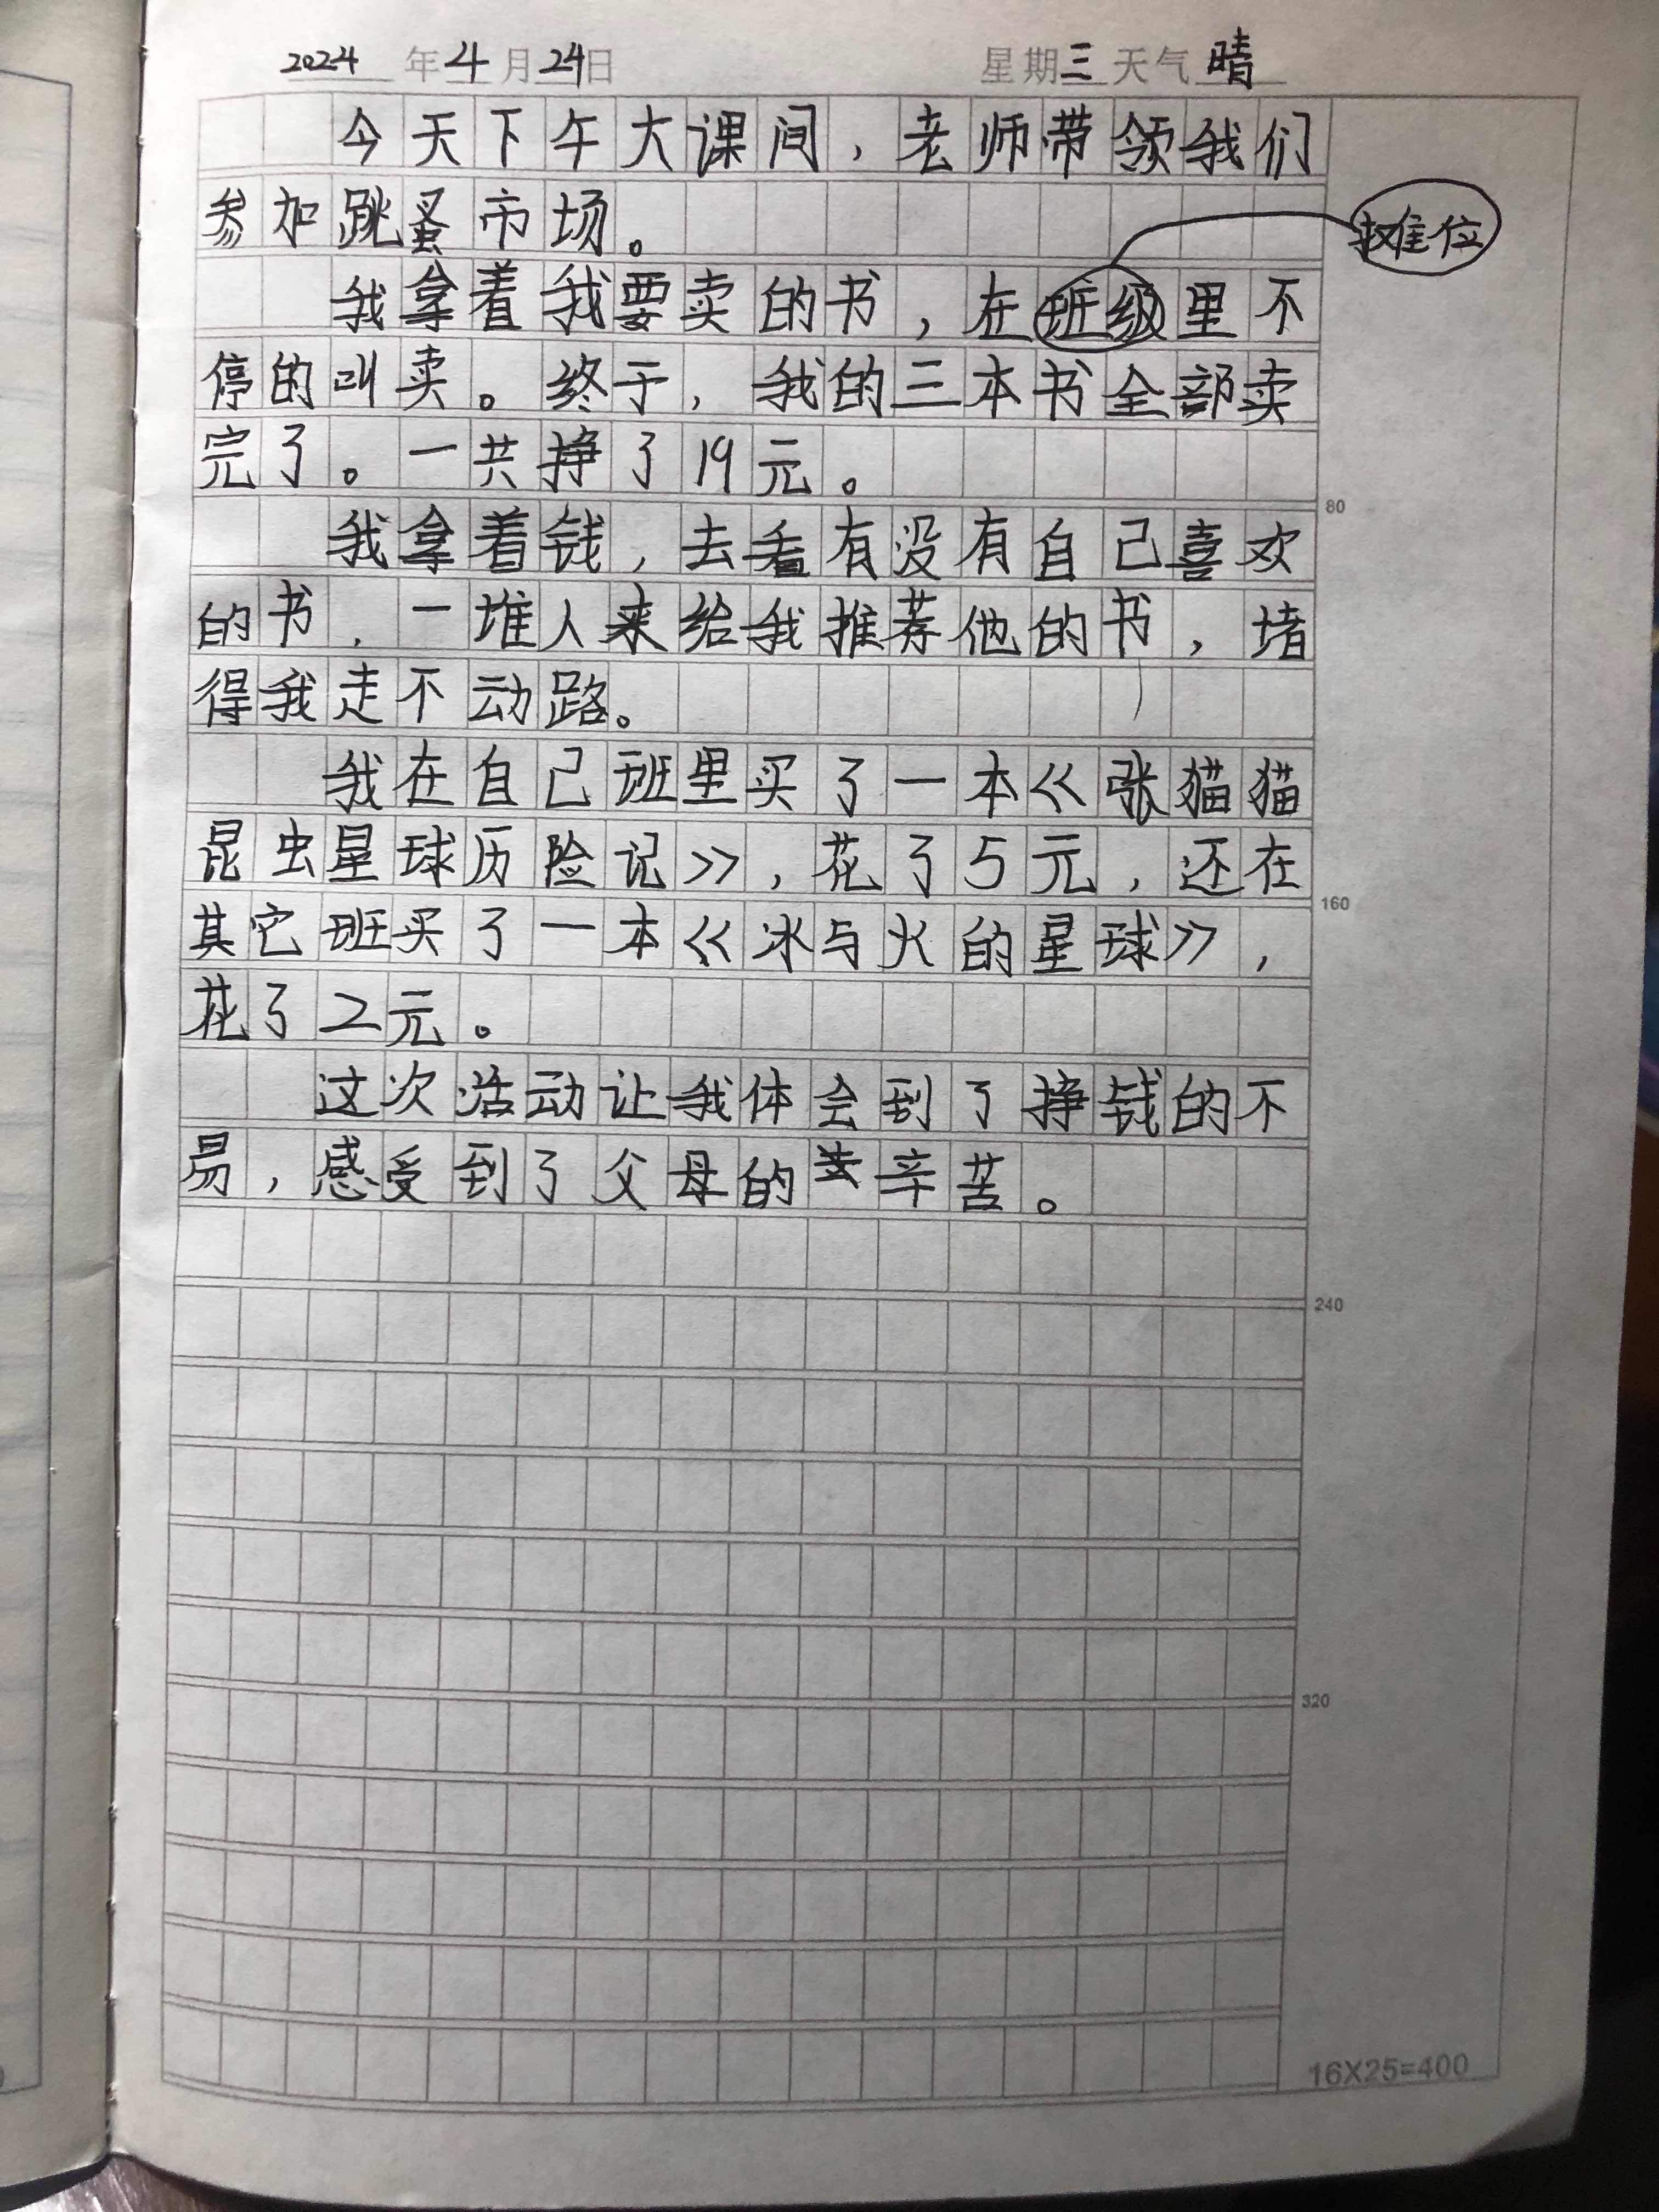 2024年4月24日 星期三天气晴
今天下午大课间，老师带领我们
参加跳蚤市场。
摊位
我拿着我要卖的书，在班级里不
停的叫卖。终于，我的三本书全部卖
完了。一共挣了19元。
80
我拿着钱，去看有没有自己喜欢
的书，一堆人来给我推荐他的书，堵
得我走不动路。
我在自己班里买了一本《张猫猫
昆虫星球历险记》，花了5元，还在
160
其它班买了一本《冰与火的星球》，
花了2元。
这次活动让我体会到了挣钱的不
易，感受到了父母的辛苦。
240
320
16X25=400